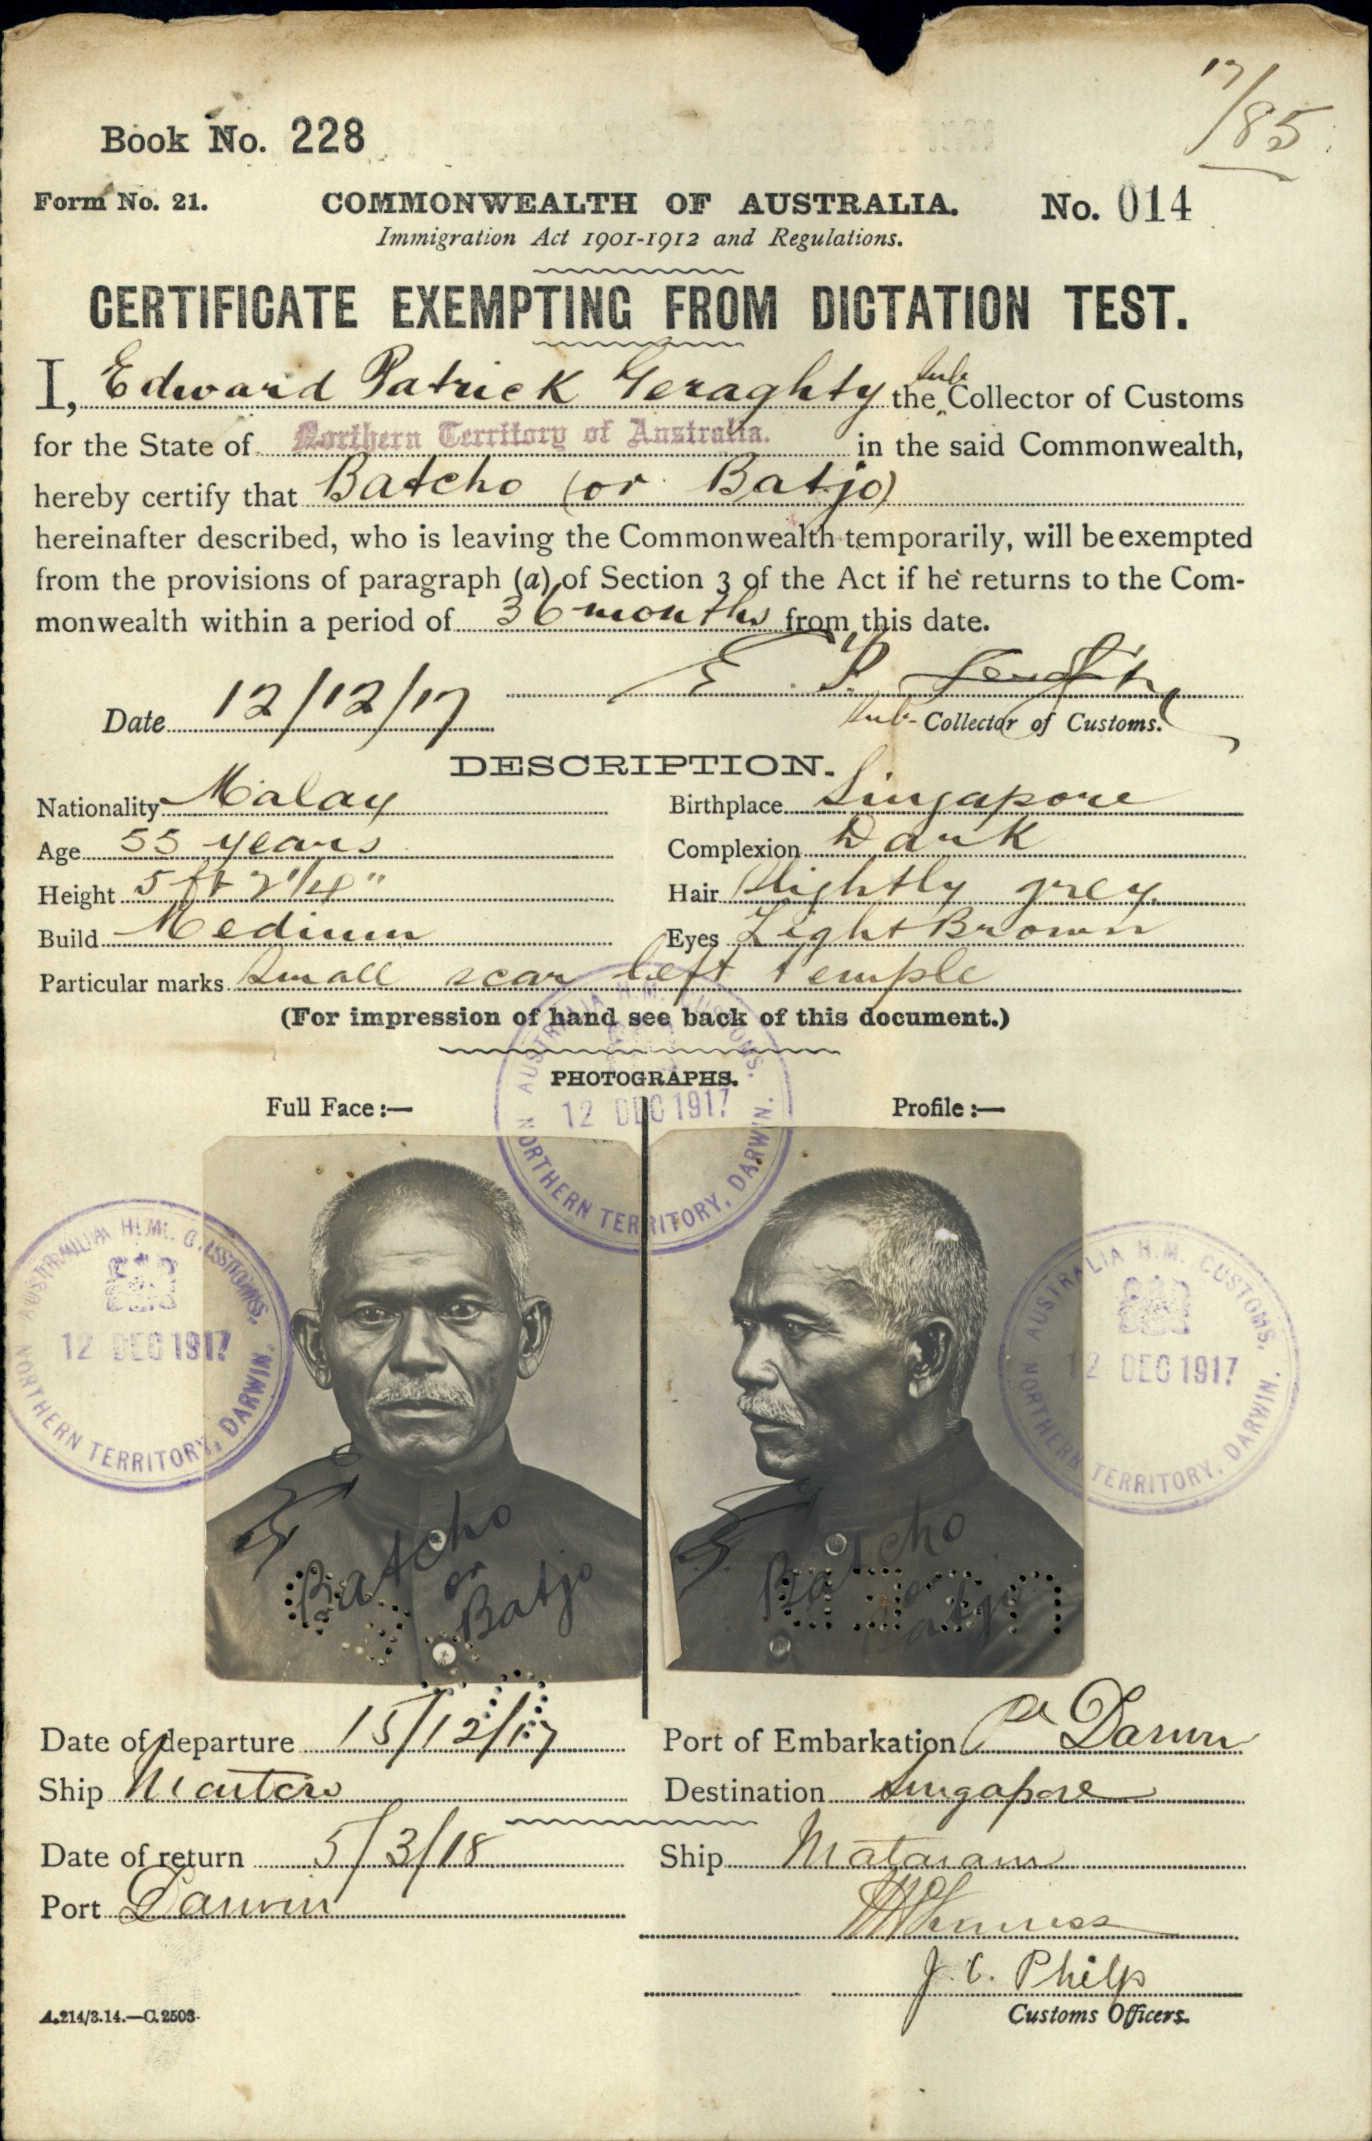 17/85
Book No. 228
Form No. 21. COMMONWEALTH OF AUSTRALIA. No. 014
Immigration Act 1901-1912 and Regulations.
CERTIFICATE EXEMPTING FROM DICTATION TEST.
I, Edward Patrick Geraghty the Sub Collector of Customs
for the State of Northern Territory of Australia. in the said Commonwealth,
hereby certify that Batcho (or Batjo)
hereinafter described, who is leaving the Commonwealth temporarily, will be exempted
from the provisions of paragraph (a) of Section 3 of the Act if he returns to the Com-
monwealth within a period of 36 months from this date.
Date 12/12/17 E. P. Geraghty
Sub- Collector of Customs.
DESCRIPTION.
Nationality Malay Birthplace Singapore
Age 55 years Complexion Dark
Height 5 ft 2 1/4" Hair Slightly grey.
Build Medium Eyes Light Brown
Particular marks Small scar left temple
(For impression of hand see back of this document.)
PHOTOGRAPHS.
Full Face:— Profile:—
AUSTRALIA H.M. CUSTOMS. 12 DEC 1917 NORTHERN TERRITORY, DARWIN.
AUSTRALIA H.M. CUSTOMS. 12 DEC 1917 NORTHERN TERRITORY, DARWIN.
AUSTRALIA H.M. CUSTOMS. 12 DEC 1917 NORTHERN TERRITORY, DARWIN.
Batcho
or
Batjo
Batcho
or
Batjo
Date of departure 15/12/17 Port of Embarkation Darwin
Ship Destination Singapore
Date of return 5/3/18 Ship Mataram
Port Darwin
J. C. Philp
Customs Officers.
A.214/3.14.—C.2503.